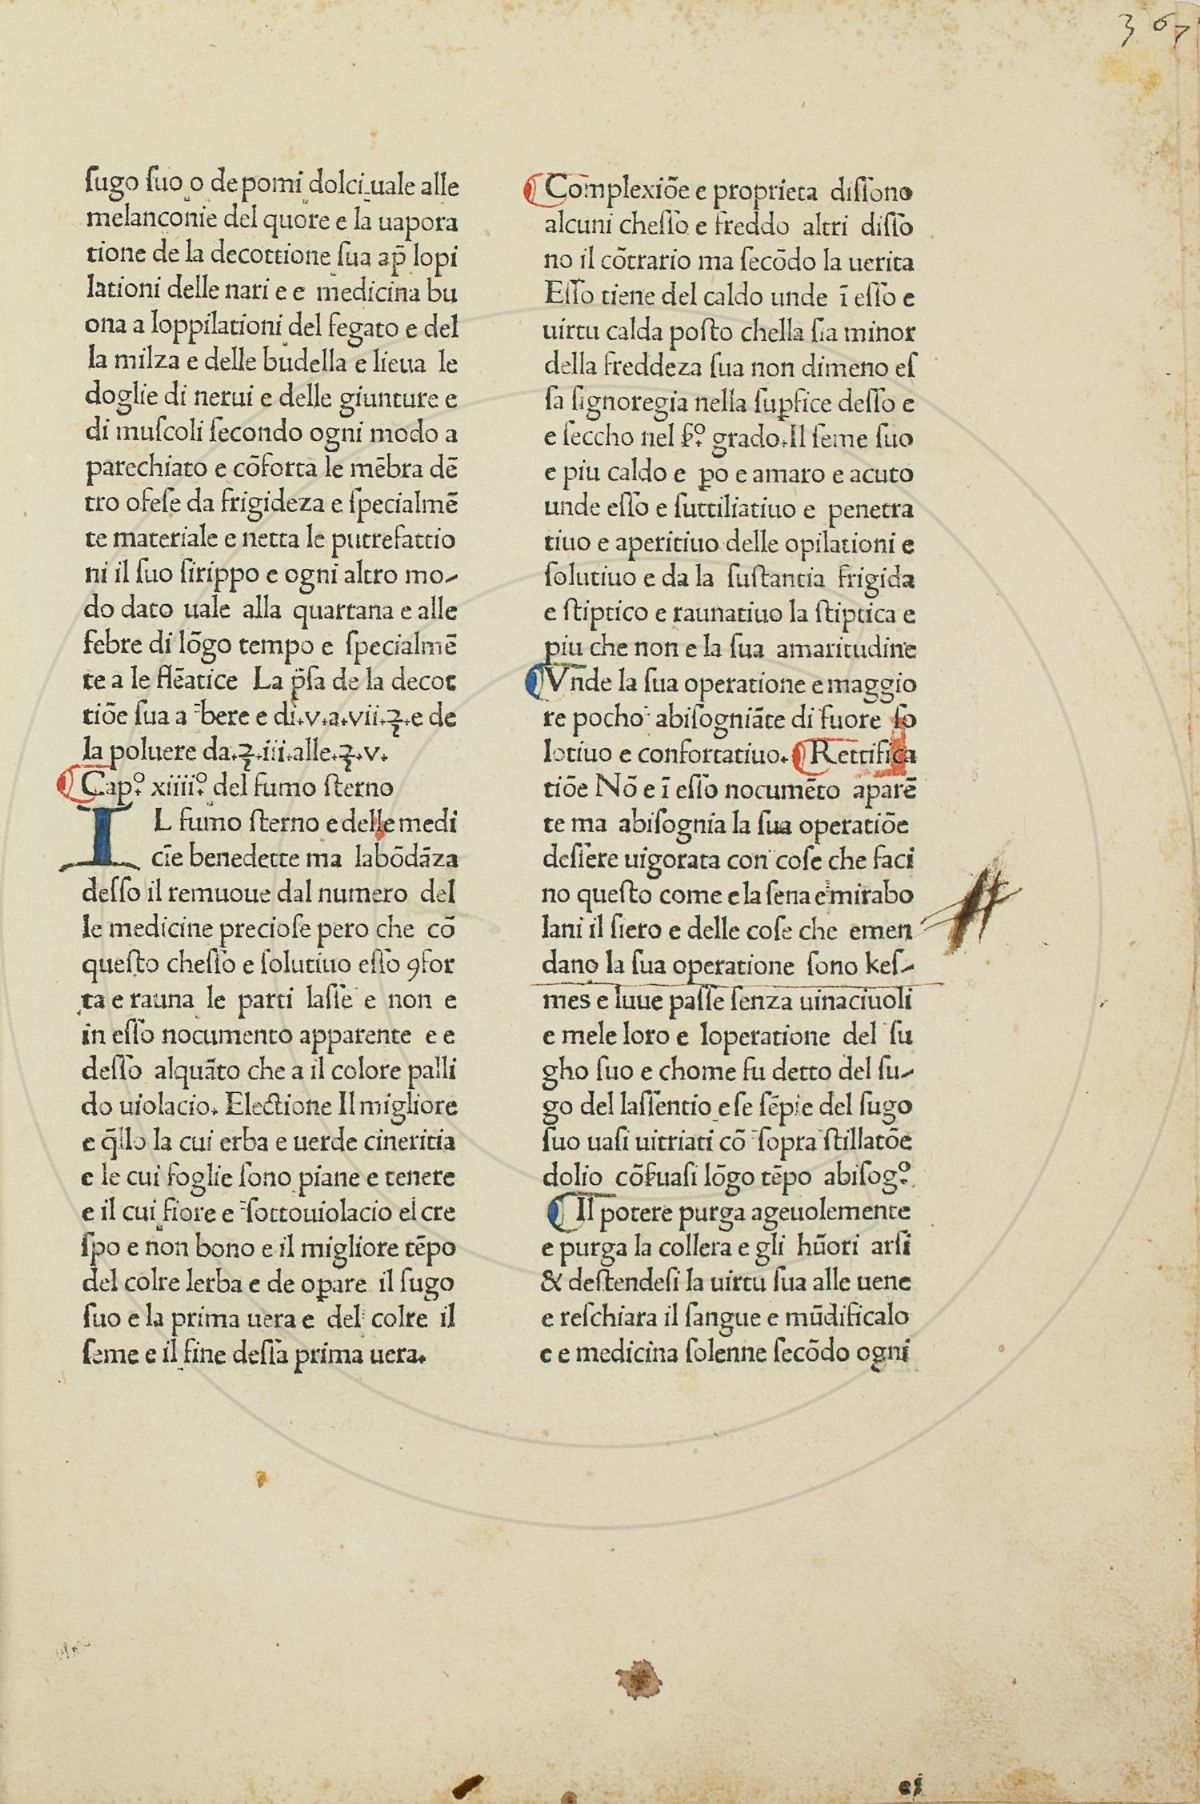 367
ſugo ſuo o de pomi dolci uale alle
melanconie del quore e la uapora
tione de la decottione ſua ap̄ lopi
lationi delle nari e e medicina bu
ona a loppilationi del fegato e del
la milza e delle budella e lieua le
doglie di nerui e delle giunture e
di muſcoli ſecondo ogni modo a
parechiato e cōforta le mēbra dē
tro ofeſe da frigideza e ſpecialmē
te materiale e netta le putrefattio
ni il ſuo ſirippo e ogni altro mo-
do dato uale alla quartana e alle
febre di lōgo tempo e ſpecialmē
te a le flēatice La p̄ſa de la decot
tiōe ſua a bere e di.v.a.vii.ʒ.e de
la poluere da.ʒ.iii.alle.ʒ.v.
Capº. xiiiiº. del fumo ſterno
IL fumo ſterno e delle medi
cīe benedette ma labōdāza
deſſo il remuoue dal numero del
le medicine precioſe pero che cō
queſto cheſſo e ſolutiuo eſſo ꝯfor
ta e rauna le parti laſſe e non e
in eſſo nocumento apparente e e
deſſo alquāto che a il colore palli
do uiolacio. Electione Il migliore
e q̄llo la cui erba e uerde cineritia
e le cui foglie ſono piane e tenere
e il cui fiore e ſottouiolacio el cre
ſpo e non bono e il migliore tēpo
del colre lerba e de oꝑare il ſugo
ſuo e la prima uera e del colre il
ſeme e il fine deſſa prima uera.
Complexiōe e proprieta diſſono
alcuni cheſſo e freddo altri diſſo
no il cōtrario ma ſecōdo la uerita
Eſſo tiene del caldo unde ī eſſo e
uirtu calda poſto chella ſia minor
della freddeza ſua non dimeno eſ
ſa ſignoregia nella ſuꝑfice deſſo e
e ſeccho nel ſ̵º. grado. Il ſeme ſuo
e piu caldo e ꝑo e amaro e acuto
unde eſſo e ſuttiliatiuo e penetra
tiuo e aperitiuo delle opilationi e
ſolutiuo e da la ſuſtantia frigida
e ſtiptico e raunatiuo la ſtiptica e
piu che non e la ſua amaritudine
Vnde la ſua operatione e maggio
re pocho abiſogniāte di fuore ſo
lotiuo e confortatiuo. Rettifica
tiōe Nō e ī eſſo nocumēto aparē
te ma abiſognia la ſua operatiōe
deſſere uigorata con coſe che faci
no queſto come e la ſena e mirabo
lani il ſiero e delle coſe che emen
dano la ſua operatione ſono keſ-
mes e luue paſſe ſenza uinaciuoli
e mele loro e loperatione del ſu
gho ſuo e chome fu detto del ſu-
go del laſſentio e ſe ſēpie del ſugo
ſuo uaſi uitriati cō ſopra ſtillatōe
dolio cōſ̵uaſi lōgo tēpo abiſogº.
Il potere purga ageuolemente
e purga la collera e gli hūori arſi
& deſtendeſi la uirtu ſua alle uene
e reſchiara il ſangue e mūdificalo
e e medicina ſolenne ſecōdo ogni